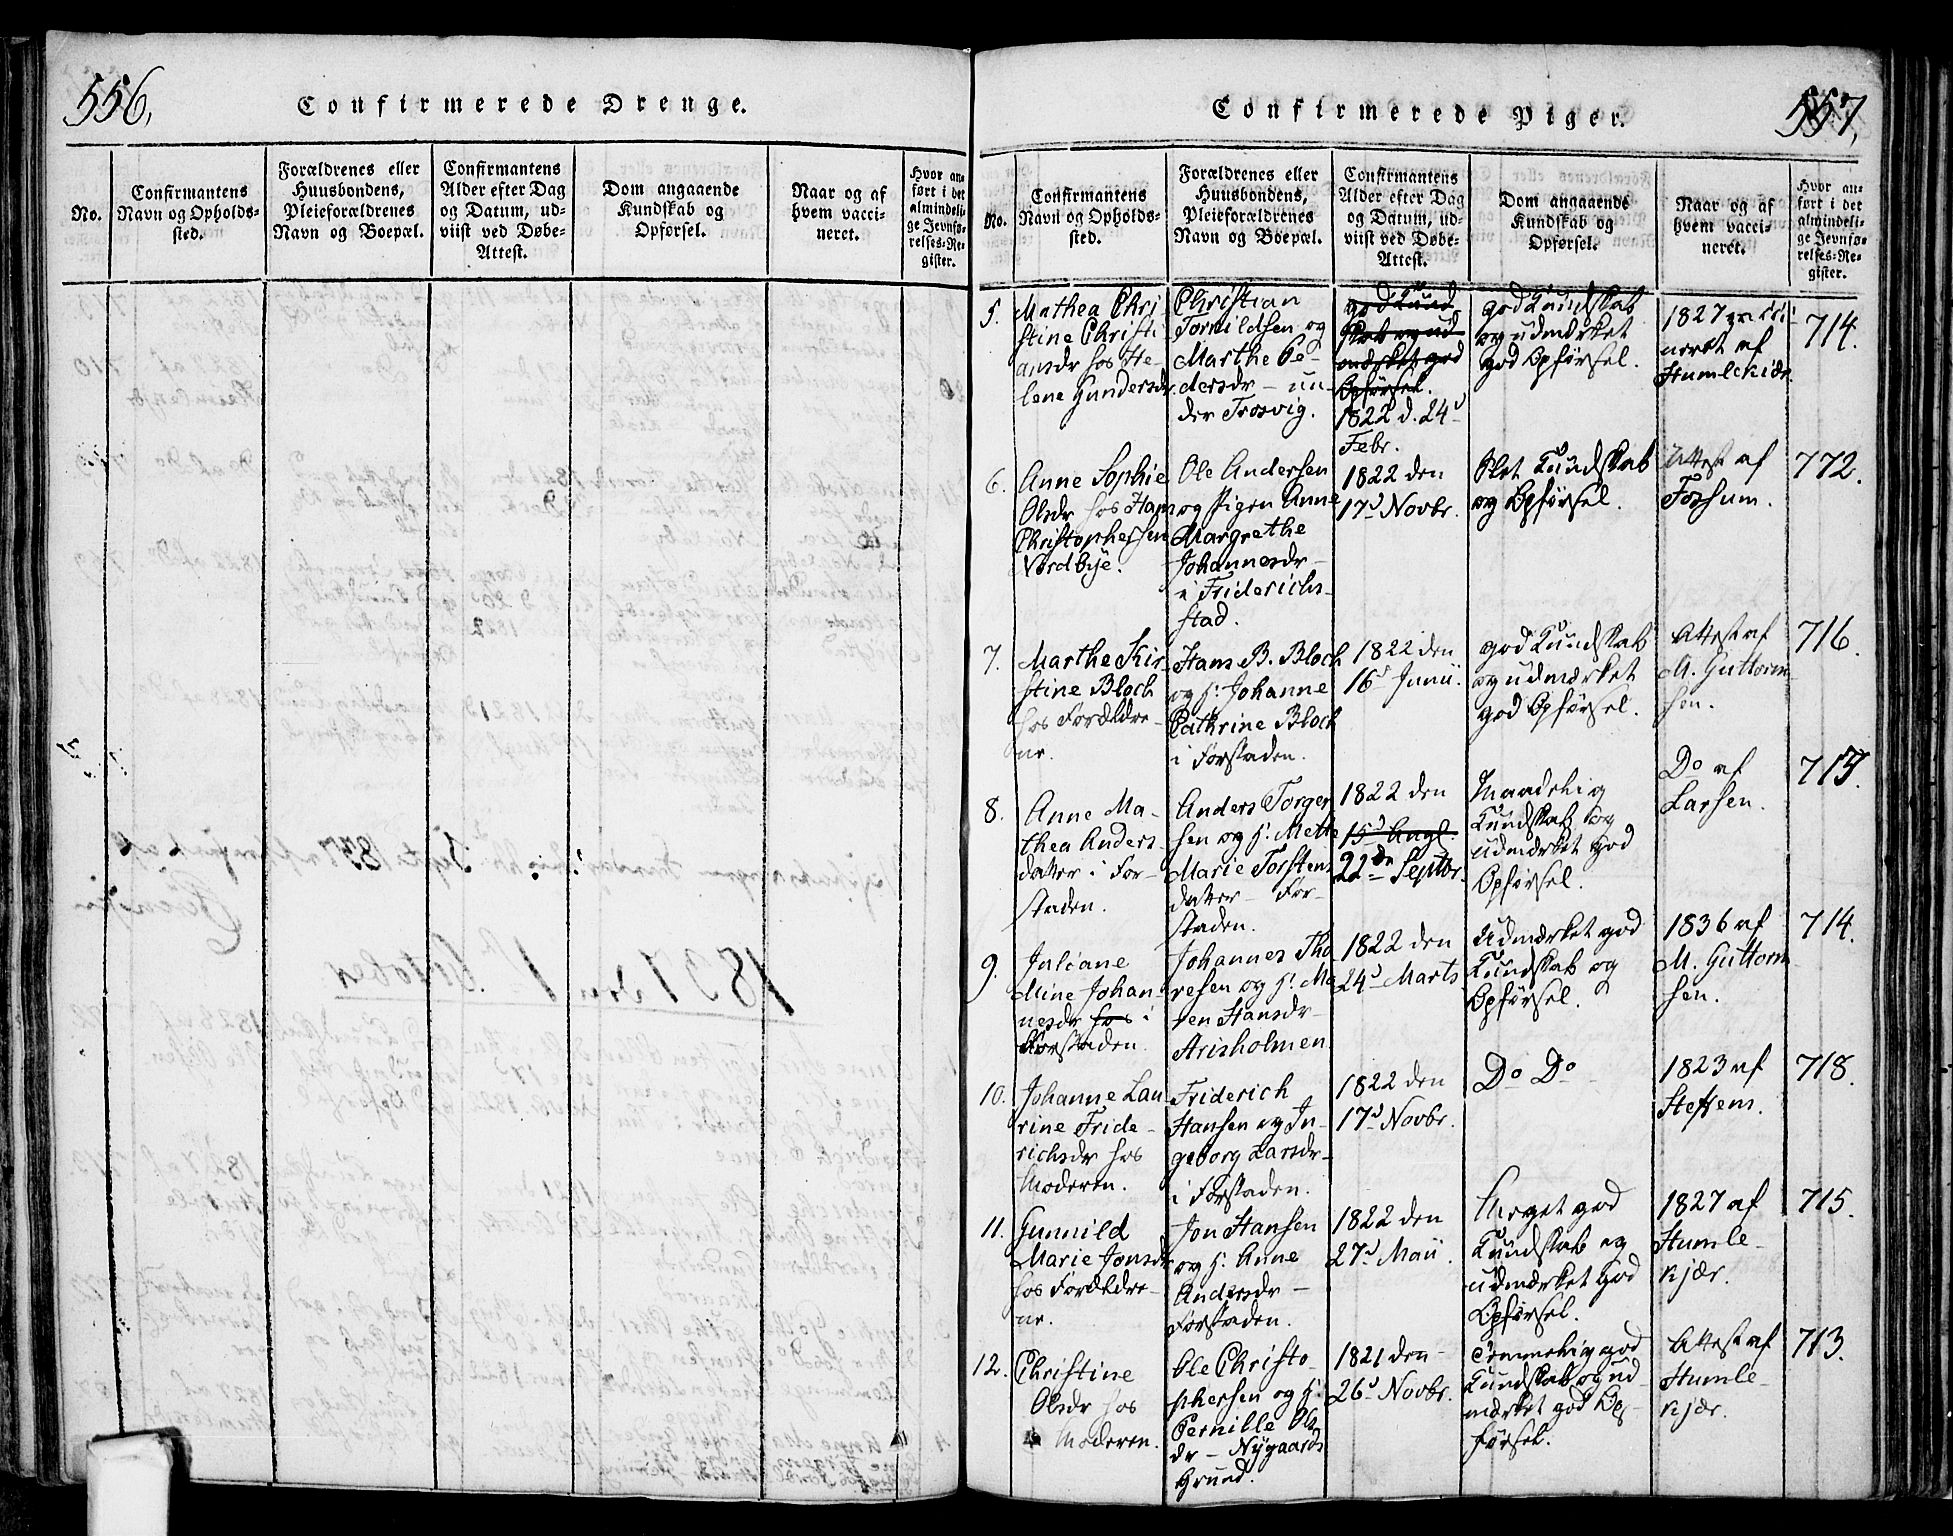 556,
Confirmerede Drenge.
No.
Confirmantens
Navn og Opholds-
sted.
Forældrenes eller
Huusbondens,
Pleieforældrenes
Navn og Boepæl.
Confirmantens
Alder efter Dag
og Datum, ud-
viist ved Døbe-
Attest.
Dom angaaende
Kundskab og
Opførsel.
Naar og af
hvem vacci-
neret.
Hvor an-
ført i det
almindeli-
ge Jevnfø-
relses-Re-
gister.
557,
Confirmerede Piger.
No.
Confirmantens
Navn og Opholds-
sted.
Forældrenes eller
Huusbondens,
Pleieforældrenes
Navn og Boepæl.
Confirmantens
Alder efter Dag
og Datum, ud-
viist ved Døbe-
Attest.
Dom angaaende
Kundskab og
Opførsel.
Naar og af
hvem vacci-
neret.
Hvor an-
ført i det
almindeli-
ge Jevnfø-
relses-Re-
gister.
5.
Mathea Chri-
stine Christi-
ansdr hos He-
lene Gundersdr.
Christian
Tormildsen og
Marthe Pe-
dersdr - un-
der Trosvig.
god Kund
skab og ud
mærket god
Opførsel.
1822 d. 24d
Febr.
god Kundskab
og udmærket
god Opførsel.
1827 vacci-
neret af
Humlekiær.
714.
6.
Anne Sophie
Olsdr hos Hans
Christophersen
Nordbye.
Ole Andersen
og Pigen Anne
Margrethe
Johannesdr -
i Friderichs-
stad.
1822 den
17d Novbr.
Slet Kundskab
og Opførsel.
Attest af
Fossum.
772.
7.
Marthe Kir-
stine Bloch
hos Forældre-
ne.
Hans B. Bloch
og h: Johanne
Cathrine Bloch
i Forstaden.
1822 den
16d Junii.
god Kundskab
og udmærket
god Opførsel.
Attest af
M. Guttorm-
sen.
716.
8.
Anne Ma-
thea Anders-
datter i For-
staden.
Anders Torger
sen og h: Mette
Marie Torstens
datter - For-
staden.
1822 den
15d Augl.
22de Septbr.
Maadelig
Kundskab og
udmærket god
Opførsel.
Do af
Larsen.
713.
9.
Juliane
Mine Johan-
nesdr hos i
Forstaden.
Johannes Tho
resen og h: Ma
ren Hansdr -
Arisholmen
1822 den
24d Marts
Udmærket god
Kundskab og
Opførsel.
1836 af
M. Guttorm-
sen.
714.
10.
Johanne Lau-
rine Fride-
richsdr hos
Moderen.
Friderich
Hansen og In-
geborg Larsdr -
i Forstaden.
1822 den
17d Novbr.
Do Do
1823 af
Steffens.
718.
11.
Gunnild
Marie Jonsdr
hos Forældre-
ne.
Jon Hansen
og h: Anne
Andersdr -
Forstaden.
1822 den
27d Maii
Meget god
Kundskab og
udmærket god
Opførsel.
1827 af
Humle-
kjær.
715.
12.
Christine
Olsdr hos
Moderen.
Ole Christo-
phersen og h:
Pernille Ols
dr - Nygaards
Grund.
1821 den
26d Novbr.
Temmelig god
Kundskab og ud-
mærket god Op-
førsel.
Attest af
Humle-
kjær.
713.